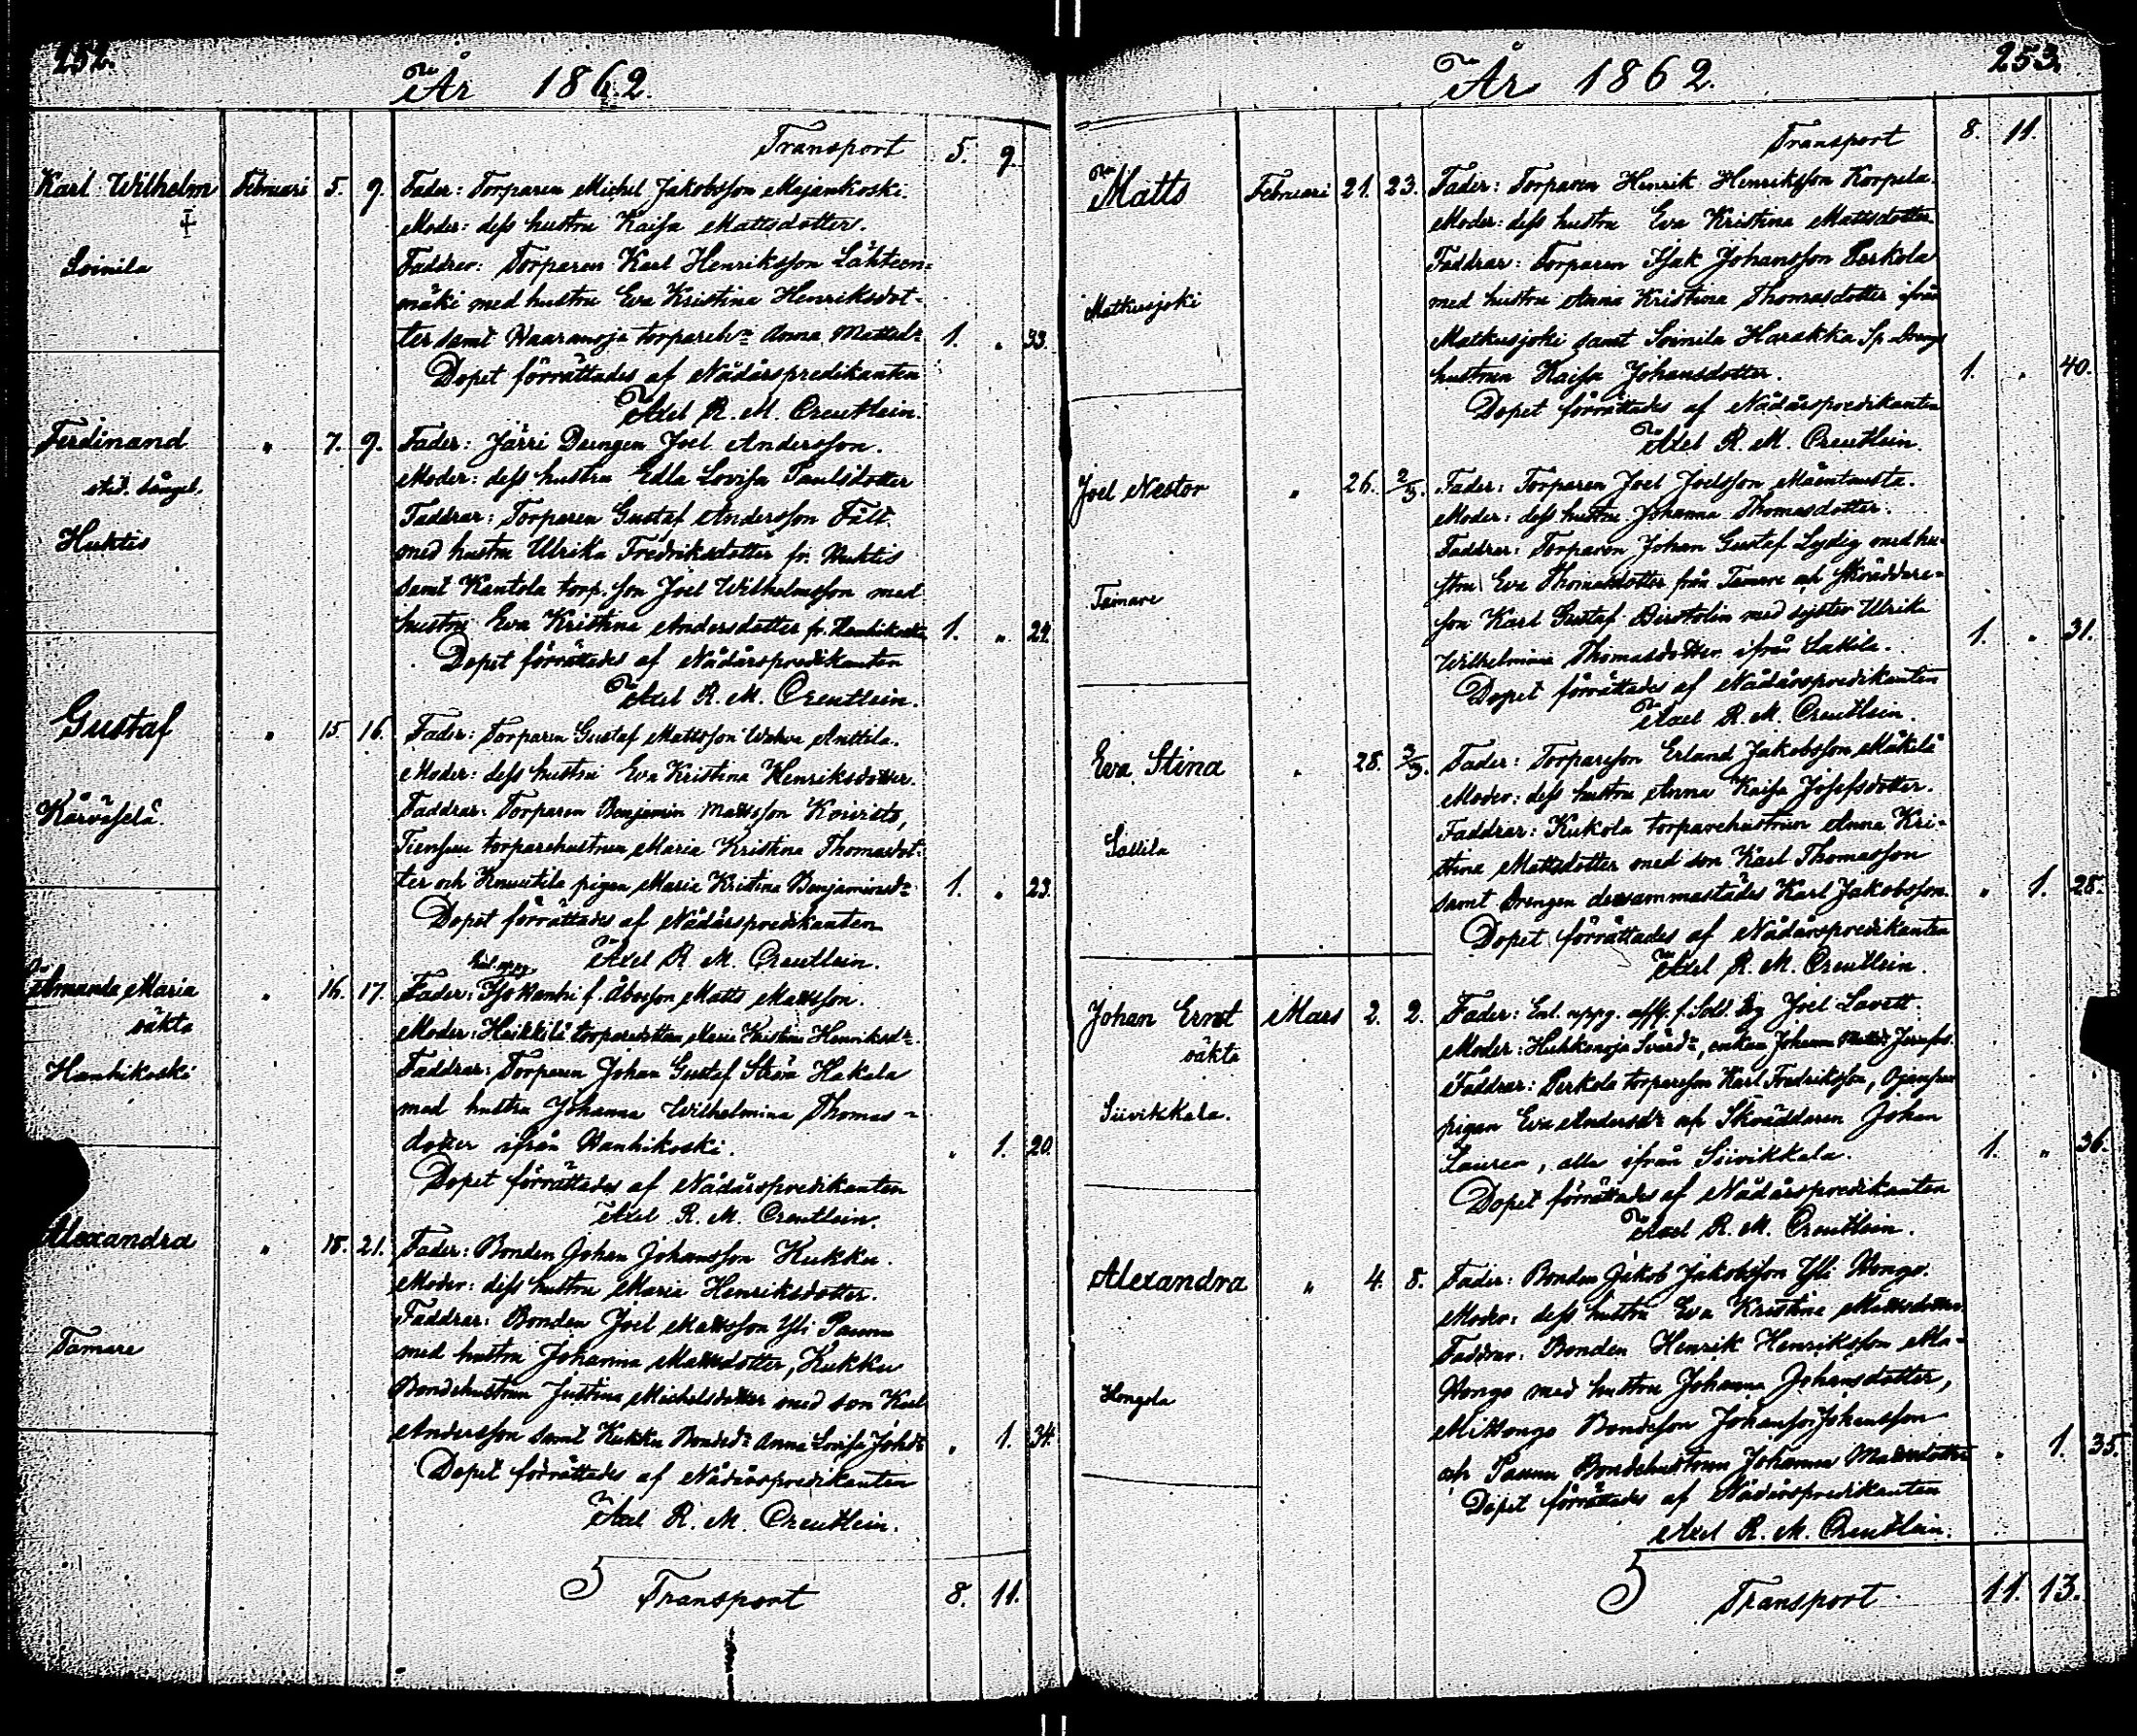 252.
År 1862.
Transport 5. 9.
Karl Wilhelm Februari 5. 9. Fader: Torparen Michel Jakobsson Majankoski.
Moder: dess hustru Kaisa Mattsdotter.
Soinila Faddrar: Torparen Karl Henriksson Lähteen-
mäki med hustru Eva Kristina Henriksdot-
ter samt torpareh:u Anna Mattsd:r 1. „ 33.
Dopet förrättades af Nådårspredikanten
Axel R. M. Creutlein.
Ferdinand „ 7. 9. Fader: Järri Drengen Joel Andersson.
Moder: dess hustru Edla Lovisa Paulsdotter
Faddrar: Torparen Gustaf Andersson Fält
Huktis med hustru Ulrika Fredriksdotter fr. Huktis
samt Kantola torp. son Joel Wilhelmsson med
hustru Eva Kristina Andersdotter fr. 1. „ 24.
Dopet förrättades af Nådårspredikanten
Axel R. M. Creutlein.
Gustaf „ 15. 16. Fader: Torparen Gustaf Mattsson Anttila.
Moder: dess hustru Eva Kristina Henriksdotter.
Faddrar: Torparen Benjamin Mattsson Koivisto,
Kärväselä. torparehustrun Maria Kristina Thomasdot-
ter och Knuutila pigan Maria Kristina Benjaminsd:r 1. „ 23.
Dopet förrättades af Nådårspredikanten
Axel R. M. Creutlein.
Amanda Maria „ 16. 17. Fader: f. Matts Mattsson.
oäkta Moder: Heikkilä torparedottern Maria Kristina Henriksd:r.
Hanhikoski Faddrar: Torparen Johan Gustaf Ström Hakala
med hustru Johanna Wilhelmina Thomas-
dotter ifrån Hanhikoski. „ 1. 20.
Dopet förrättades af Nådårspredikanten
Axel R. M. Creutlein.
Alexandra „ 18. 21. Fader: Bonden Johan Johansson Kukku.
Moder: dess hustru Maria Henriksdotter.
Faddrar: Bonden Joel Mattsson Yli Paunu
Tamare med hustru Johanna Mattsdotter, Kukku
Bondehustrun Justina Michelsdotter med son Karl
Andersson samt Kukku Bonded:r Anna Lovisa Johd:r „ 1. 34.
Dopet förrättades af Nådårspredikanten
Axel R. M. Creutlein.
5 Transport 8. 11.
253.
År 1862.
Transport 8. 11.
Matts Februari 21. 23. Fader: Torparen Henrik Henriksson Korpela.
Moder: dess hustru Eva Kristina Mattsdotter.
Faddrar: Torparen Isak Johansson Perkola
Matkusjoki med hustru Anna Kristina Thomasdotter ifrån
Matkusjoki samt Soinila Harakka Sp. Drengs
hustrun Kaisa Johansdotter. 1. „ 40.
Dopet förrättades af Nådårspredikanten
Axel R. M. Creutlein.
Joel Nestor „ 26. 2/3. Fader: Torparen Joel Joelsson Mäentausta.
Moder: dess hustru Johanna Thomasdotter.
Faddrar: Torparen Johan Gustaf Lydig med hu-
Tamare stru Eva Thomasdotter från Tamare och Skräddare-
son Karl Gustaf med syster Ulrika
Wilhelmina Thomasdotter ifrån Sallila. 1. „ 31.
Dopet förrättades af Nådårspredikanten
Axel R. M. Creutlein.
Eva Stina „ 28. 3/3. Fader: Torpareson Erland Jakobsson Mäkelä
Moder: dess hustru Anna Kaisa Josefsdotter.
Faddrar: Kukola torparehustrun Anna Kri-
Sallila stina Mattsdotter med son Karl Thomasson
samt Drengen dersammastädes Karl Jakobsson. „ 1. 28.
Dopet förrättades af Nådårspredikanten
Axel R. M. Creutlein.
Johan Ernst Mars 2. 2. Fader: Enl. uppg. Joel Lavett.
oäkta Moder: Huhkonoja enkan Johanna
Faddrar: Perkola torpareson Karl Fredriksson,
Siivikkala. pigan Eva Andersd:r och Skräddaren Johan
Lauren, alla ifrån Siivikkala. 1. „ 36.
Dopet förrättades af Nådårspredikanten
Axel R. M. Creutlein.
Alexandra „ 4. 8. Fader: Bonden Jakob Jakobsson Yli Hongo.
Moder: dess hustru Eva Kristina Mattsdotter.
Faddrar: Bonden Henrik Henriksson Ala-
Hongola Hongo med hustru Johanna Johansdotter,
Bondeson Johan Johansson
och Paunu Bondehustrun Johanna Mattsdotter „ 1. 35.
Dopet förrättades af Nådårspredikanten
Axel R. M. Creutlein.
5 Transport 11. 13.